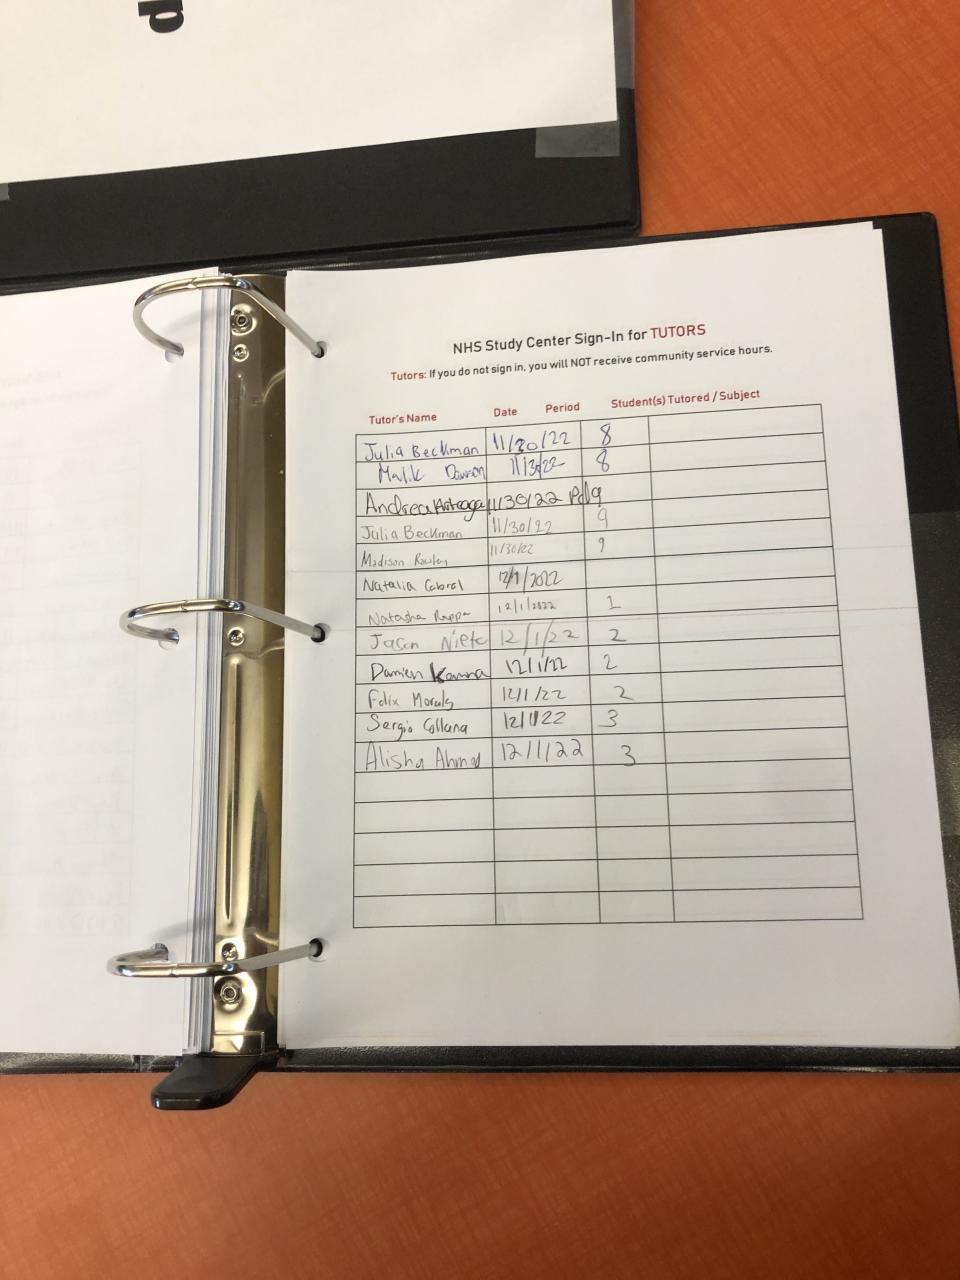 p
NHS Study Center Sign-In for TUTORS
Tutors: If you do not sign in, you will NOT receive community service hours.
Tutor's Name Date Period Student(s) Tutored / Subject
Julia Beckman 11/20/22 8
Malik Dawson 11/30/22 8
Andrea Arteaga 11/30/22 Pd 9
Julia Beckman 11/30/22 9
Madison 11/30/22 9
Natalia Cabral 12/1/2022
Natasha Rappa 12/1/2022 1
Jason Nieto 12/1/22 2
Damien 12/1/22 2
Felix Morals 12/1/22 2
Sergio Collana 12/1/22 3
Alisha Ahmad 12/1/22 3